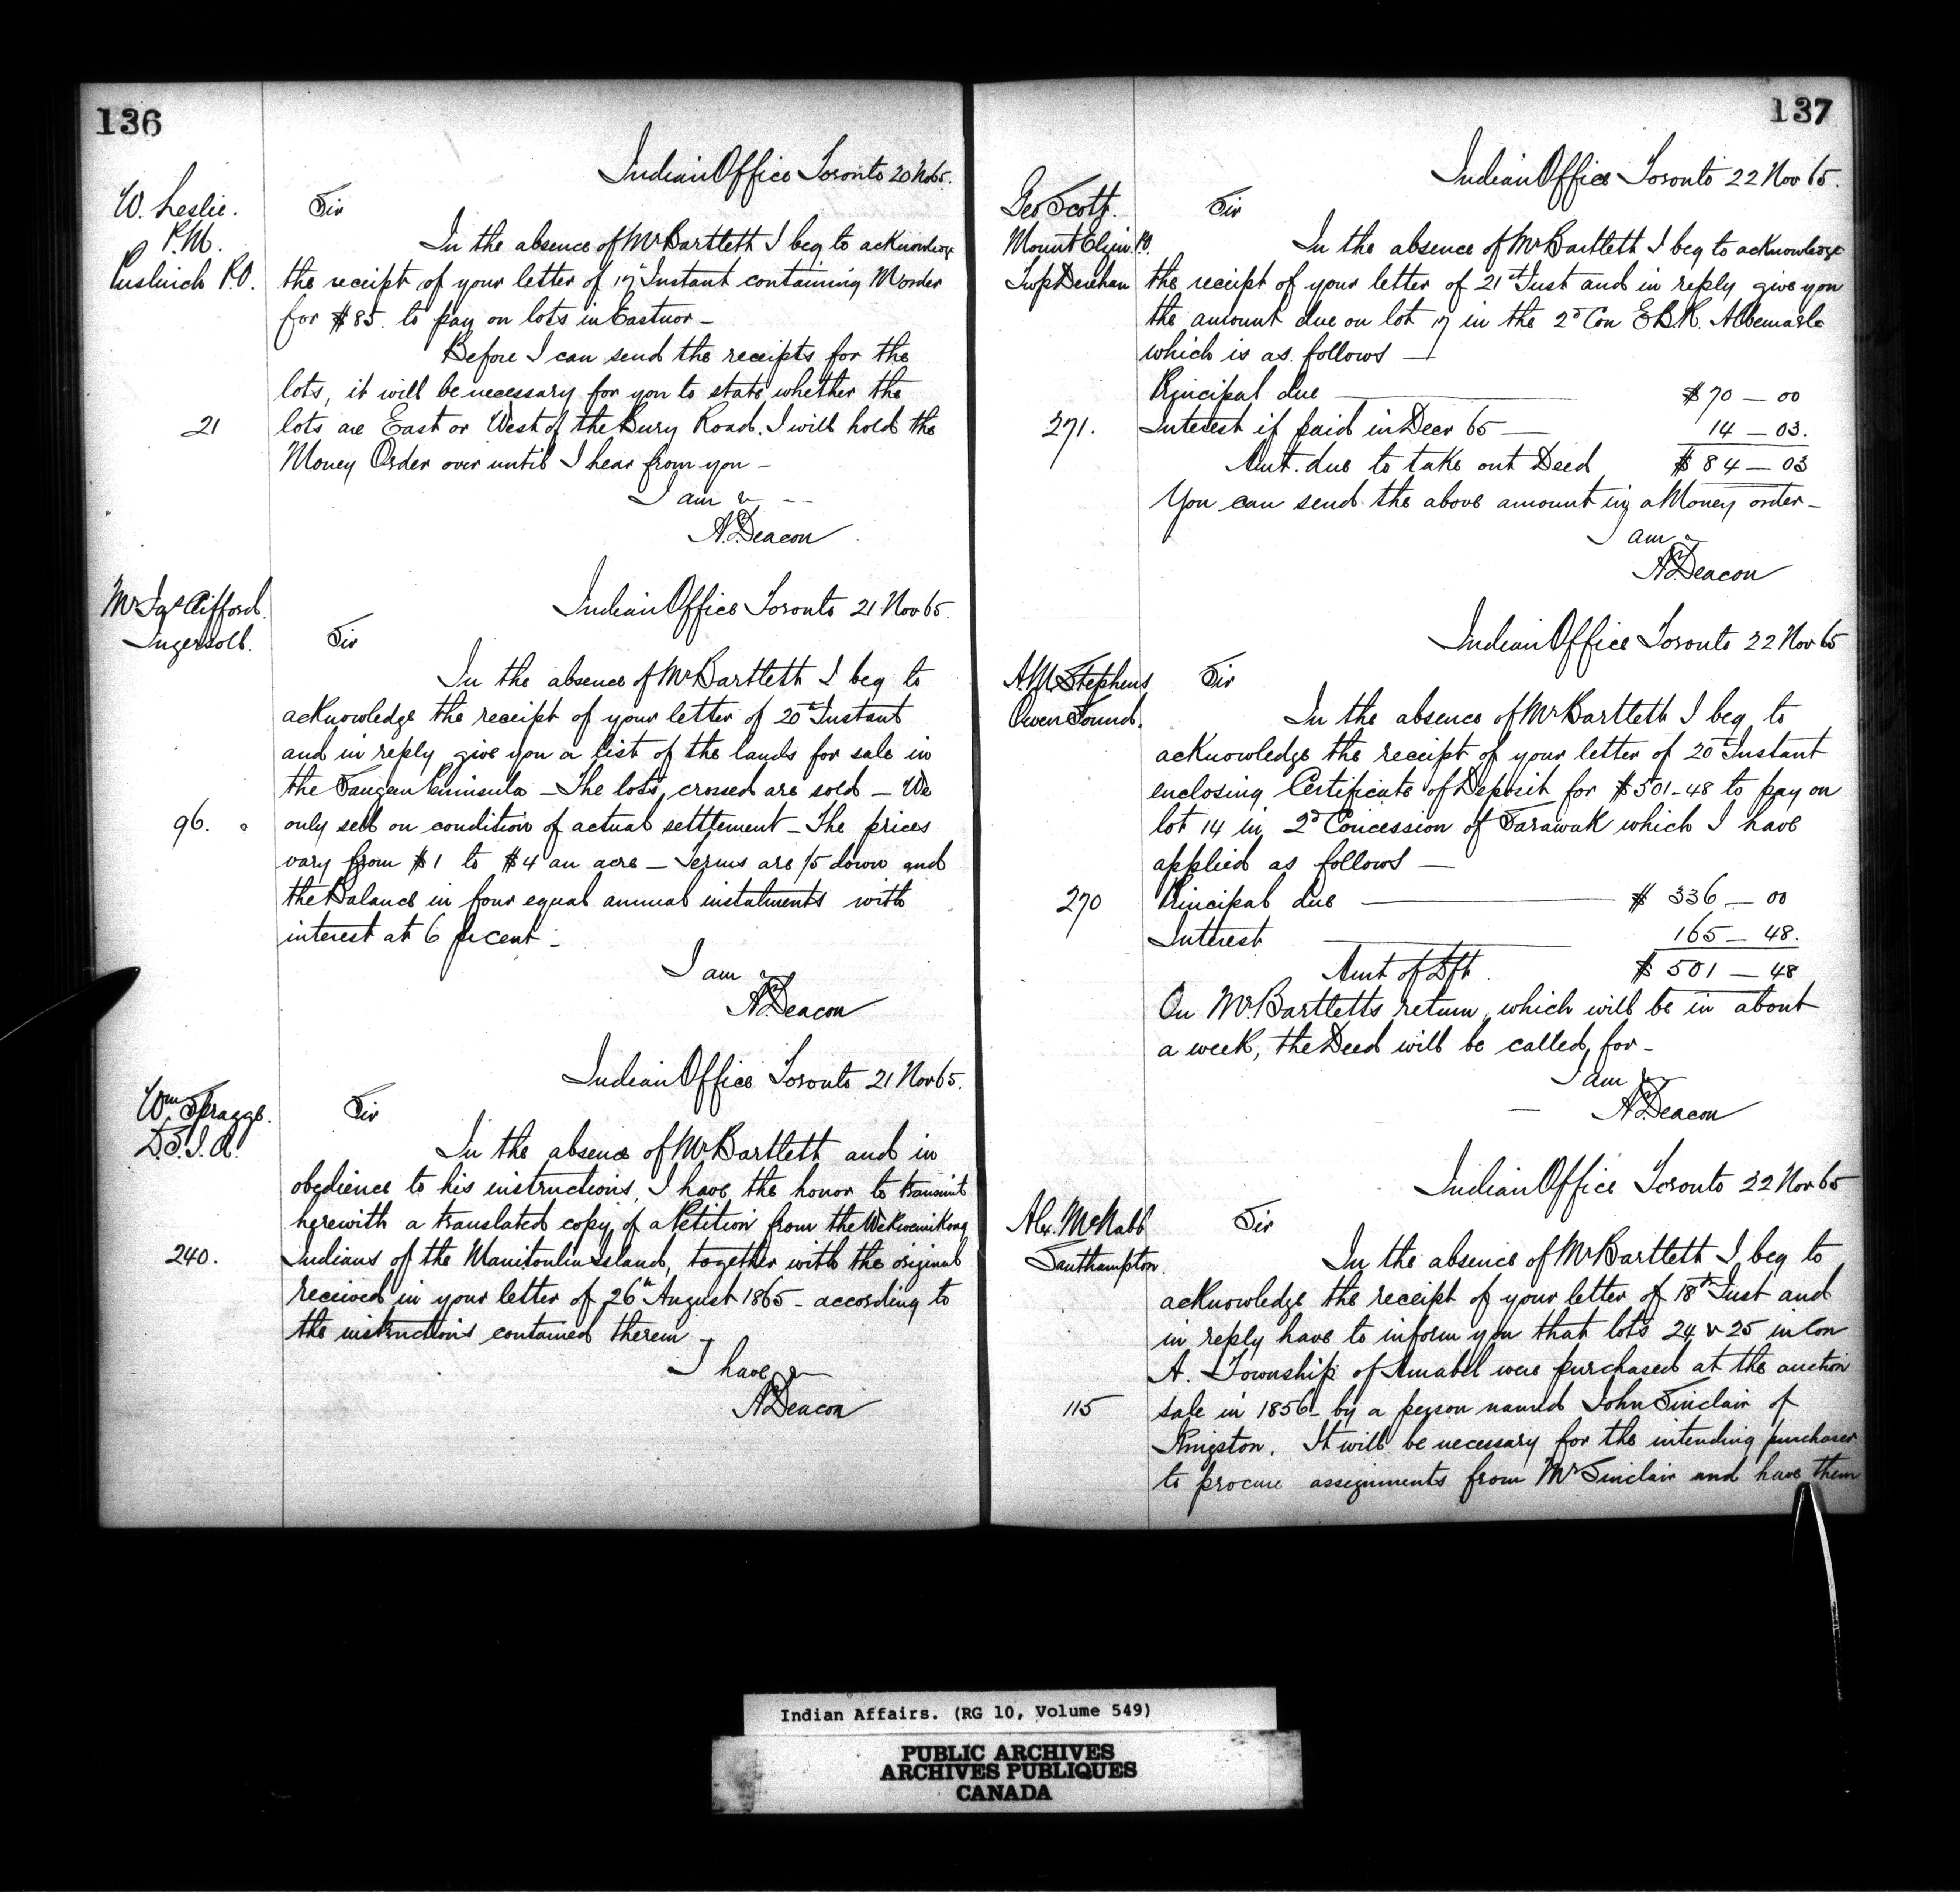 136
Indian Office Toronto 20 Nov 65.
W. Leslie.
P.M.
Puslinch P.O.
Sir
In the absence of Mr Bartlett I beg to acknowledge
the receipt of your letter of 17th Instant containing M order
for $85. to pay on lots in Eastnor —
Before I can send the receipts for the
lots, it will be necessary for you to state whether the
21
lots are East or West of the Bury Road. I will hold the
Money Order over until I hear from you —
I am &
A. Deacon
Indian Office Toronto 21 Nov 65.
Mr Jas Clifford
Ingersoll.
Sir
In the absence of Mr Bartlett I beg to
acknowledge the receipt of your letter of 20th Instant
and in reply give you a list of the lands for sale in
the Saugeen Peninsula — The lots, crossed are sold — We
96.
only sell on condition of actual settlement — The prices
vary from $1 to $4 an acre — Terms are 1/5 down and
the Balance in four equal annual instalments with
interest at 6 pr cent —
I am &
A. Deacon
Indian Office Toronto 21 Nov 65.
Wm Spragge.
D.S.I.A.
Sir
In the absence of Mr Bartlett and in
obedience to his instructions, I have the honor to transmit
herewith a translated copy of a Petition from the Wekwemikong
240.
Indians of the Manitoulin Island, together with the original
received in your letter of 26th August 1865 — according to
the instructions contained therein —
I have &
A. Deacon
137
Indian Office Toronto 22 Nov 65.
Geo Scott.
Mount Elgin. P.O.
Twp Dereham
Sir
In the absence of Mr Bartlett I beg to acknowledge
the receipt of your letter of 21st Inst and in reply give you
the amount due on lot 17 in the 2d Con E B R. Albemarle
which is as follows —
Principal due — $70 — 00
271.
Interest if paid in Decr 65 — 14 — 03.
Amt. due to take out Deed $84 — 03
You can send the above amount in a Money order —
I am &
A. Deacon
Indian Office Toronto 22 Nov 65
A. M. Stephens
Owen Sound.
Sir
In the absence of Mr Bartlett I beg to
acknowledge the receipt of your letter of 20th Instant
enclosing Certificate of Deposit for $501-48 to pay on
lot 14 in 2d Concession of Sarawak which I have
applied as follows —
270
Principal due — $336 — 00
Interest — 165 — 48.
Amt of Dft. $501 — 48
On Mr. Bartletts return, which will be in about
a week, the Deed will be called for —
I am &
A. Deacon
Indian Office Toronto 22 Nov 65
Alex. McNabb
Southampton.
Sir
In the absence of Mr Bartlett I beg to
acknowledge the receipt of your letter of 18th Inst and
in reply have to inform you that lots 24 & 25 in Con
A. Township of Amabel were purchased at the auction
115
sale in 1856 — by a person named John Sinclair of
Kingston. It will be necessary for the intending purchaser
to procure assignments from Mr Sinclair and have them
Indian Affairs. (RG 10, Volume 549)
PUBLIC ARCHIVES
ARCHIVES PUBLIQUES
CANADA